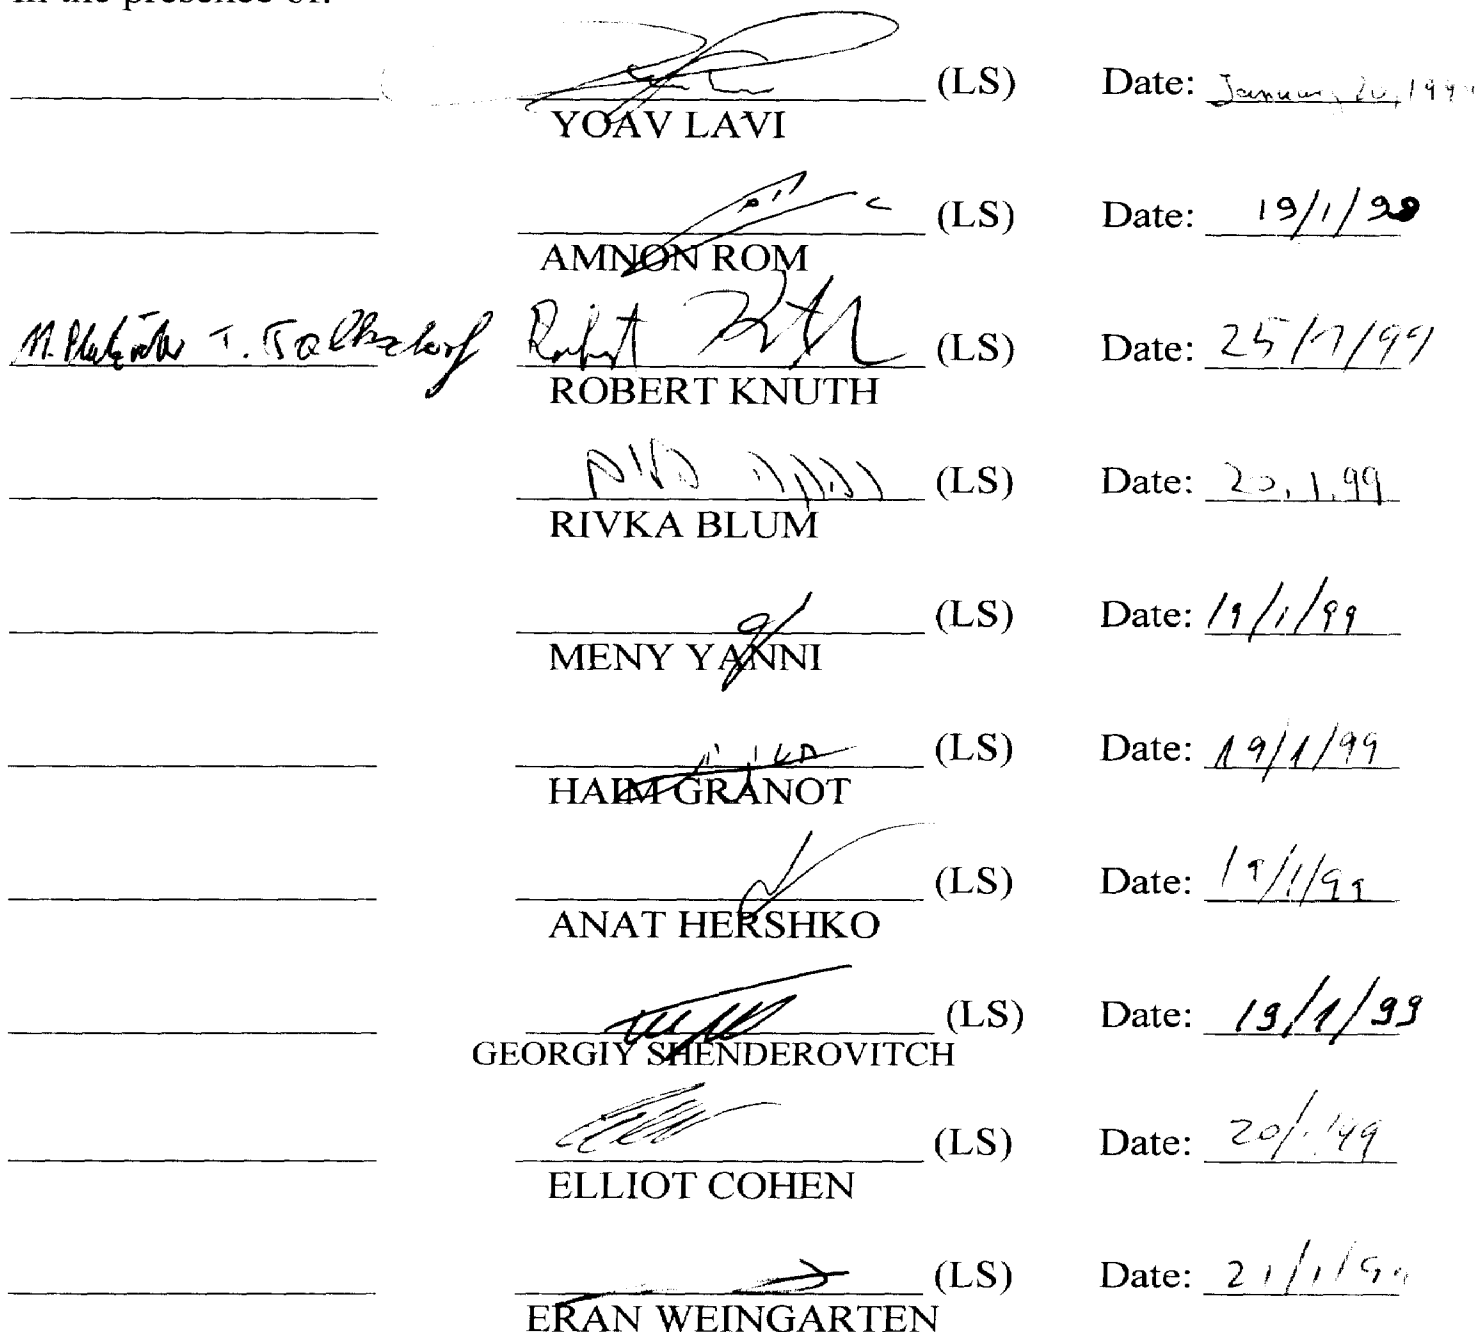 In the presence of:
(LS) Date: January 20, 199
YOAV LAVI
(LS) Date: 19/1/98
AMNON ROM
T. Robert Knuth (LS) Date: 25/1/99
ROBERT KNUTH
(LS) Date: 20.1.99
RIVKA BLUM
(LS) Date: 19/1/99
MENY YANNI
(LS) Date: 19/1/99
HAIM GRANOT
(LS) Date: 19/1/99
ANAT HERSHKO
(LS) Date: 19/1/99
GEORGIY SHENDEROVITCH
(LS) Date: 20/1/99
ELLIOT COHEN
(LS) Date: 21/1/99
ERAN WEINGARTEN